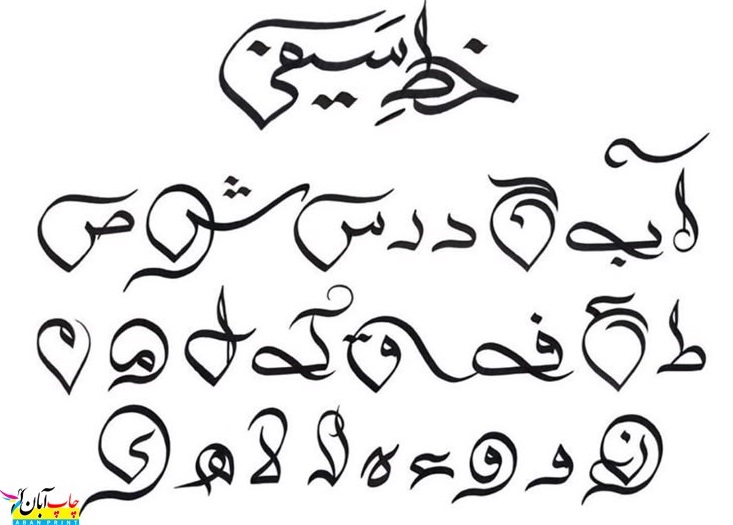 خطِ سَیفی
آ ب ح د ر س ش ص
ط ع ف ق ک ل م ن
ن و و ء ه لا لا ه ی
چاپ آبان
ABAN PRINT